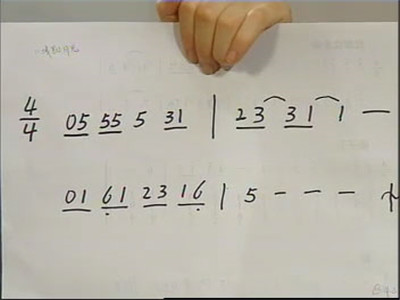 4/4 05 55 5 31 | 23 31 1 —
01 61 23 16 | 5 - - -